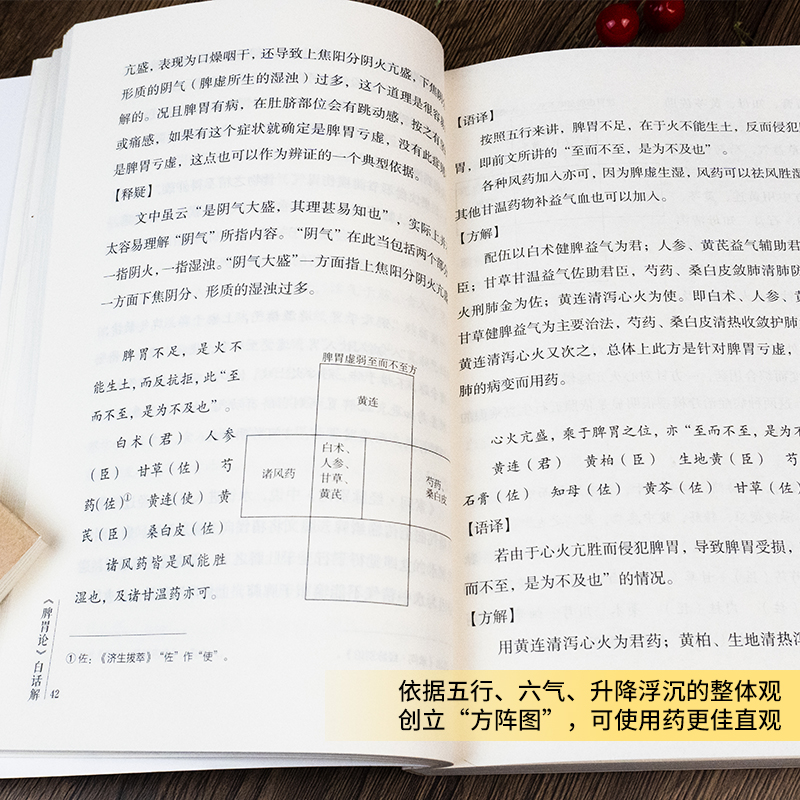 亢盛，表现为口燥咽干，还导致上焦阳分阴火亢盛，下焦阴
形质的阴气（脾虚所生的湿浊）过多，这个道理是很容易
解的。况且脾胃有病，在肚脐部位会有跳动感，按之有
或痛感，如果有这个症状就确定是脾胃亏虚，没有此症
是脾胃亏虚，这点也可以作为辨证的一个典型依据。
【释疑】
文中虽云“是阴气大盛，其理甚易知也”，实际上并
太容易理解“阴气”所指内容。“阴气”在此当包括两个部分
一指阴火，一指湿浊。“阴气大盛”一方面指上焦阳分阴火亢盛
一方面下焦阴分、形质的湿浊过多。
脾胃不足，是火不
能生土，而反抗拒，此“至
而不至，是为不及也”。
白术（君） 人参
（臣） 甘草（佐） 芍
药（佐）① 黄连（使） 黄
芪（臣） 桑白皮（佐）
诸风药皆是风能胜
湿也，及诸甘温药亦可。
脾胃虚弱至而不至方
黄连
诸风药
白术、
人参、
甘草、
黄芪
芍药、
桑白皮
①佐：《济生拔萃》“佐”作“使”。
《脾胃论》白话解
42
【语译】
按照五行来讲，脾胃不足，在于火不能生土，反而侵犯
胃，即前文所讲的“至而不至，是为不及也”。
各种风药加入亦可，因为脾虚生湿，风药可以祛风胜湿
其他甘温药物补益气血也可以加入。
【方解】
配伍以白术健脾益气为君；人参、黄芪益气辅助君
臣；甘草甘温益气佐助君臣，芍药、桑白皮敛肺清肺防
火刑肺金为佐；黄连清泻心火为使。即白术、人参、黄
甘草健脾益气为主要治法，芍药、桑白皮清热收敛护肺
黄连清泻心火又次之，总体上此方是针对脾胃亏虚，
肺的病变而用药。
心火亢盛，乘于脾胃之位，亦“至而不至，是为不
黄连（君） 黄柏（臣） 生地黄（臣） 芍
石膏（佐） 知母（佐） 黄芩（佐） 甘草（佐）
【语译】
若由于心火亢胜而侵犯脾胃，导致脾胃受损，
而不至，是为不及也”的情况。
【方解】
用黄连清泻心火为君药；黄柏、生地清热泻
依据五行、六气、升降浮沉的整体观
创立“方阵图”，可使用药更佳直观